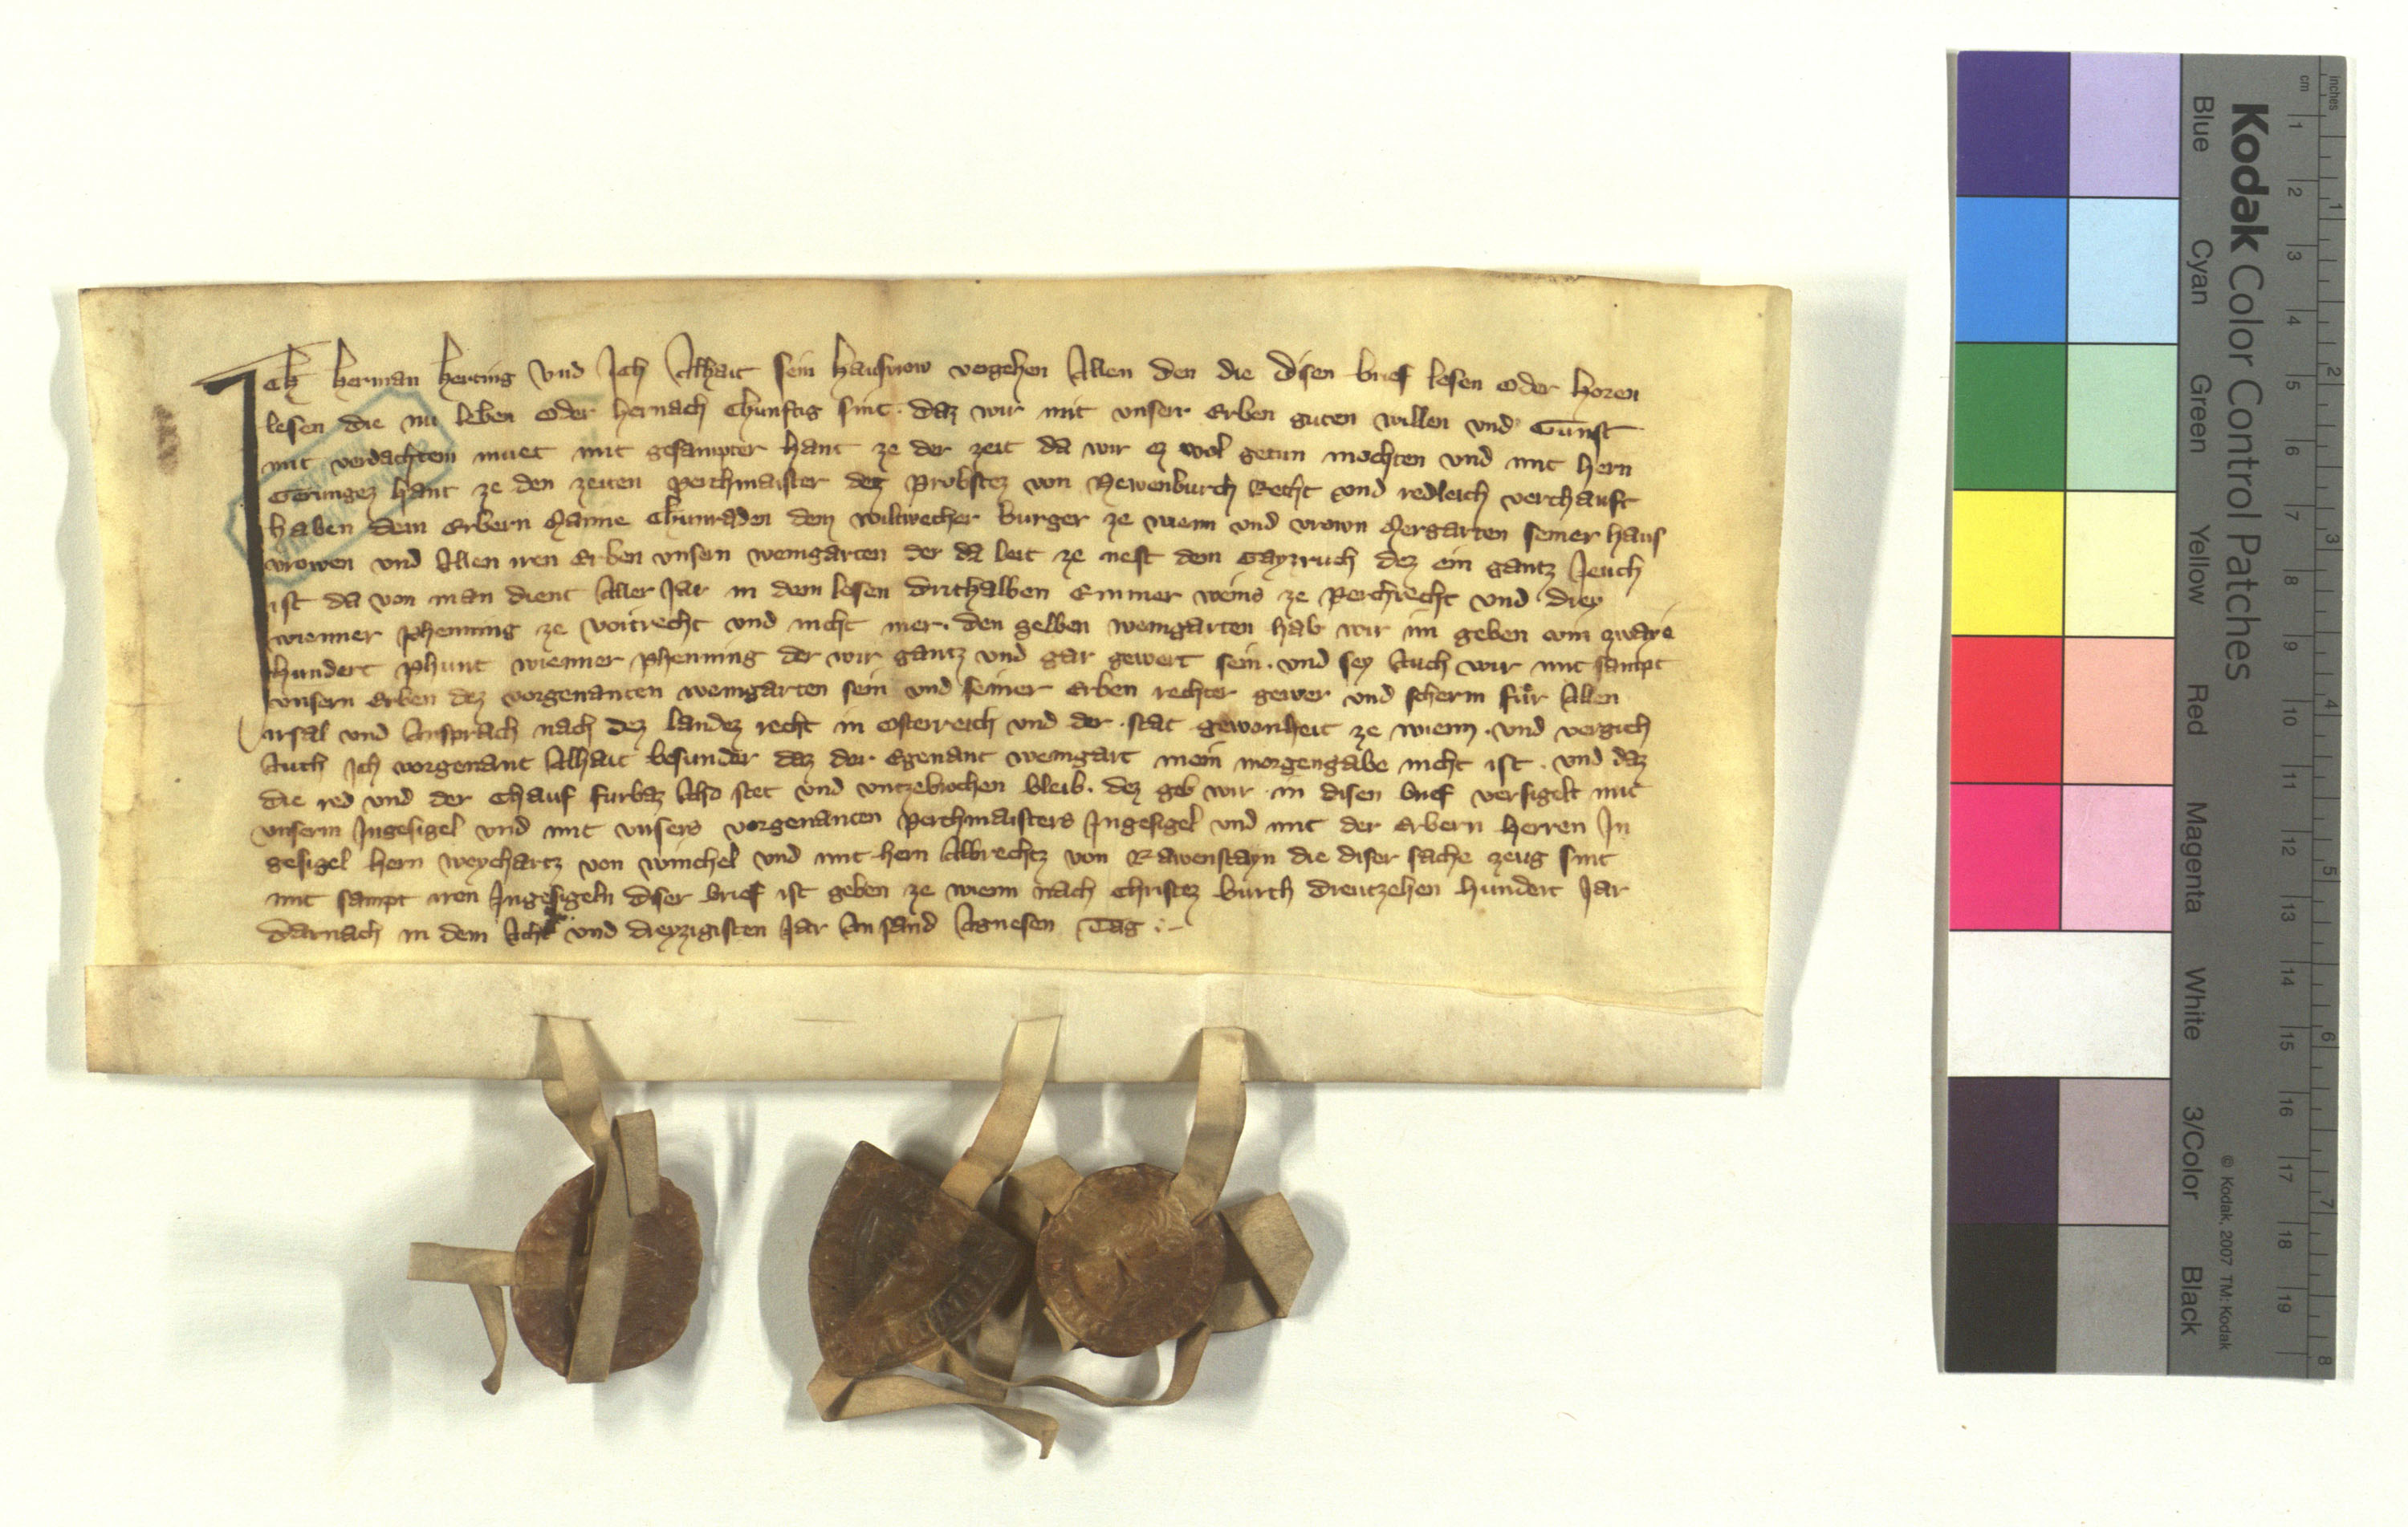 Ich herman herting Vnd Ich Alhait sein hausvrow vergehen Allen den die disen brief lesen oder horen
lesen die nu leben oder hernach chunftig sint. daz wir mit vnserr Erben guten willen vnd Gunst
mit verdachtem muet mit gesampter hant ze der zeit da wir ez wol getun mochten vnd mit hern
Gerungez hant ze den zeiten perchmaister dez Probstez von Newenburch Recht vnd redleich verchauft
haben dem Erbern Manne Chunraden dem wiltwercher burger ze wienn vnd vrown Mergarten seiner haus
vrowen vnd Allen iren Erben vnsern weingarten der da leit ze nest dem Gayzruch dez ein gantz Jeuch
ist da von man dient Aller Jar in dem lesen drithalben Emmer weins ze perchrecht vnd drey
wienner phenning ze voitrecht vnd nicht mer. den selben weingarten hab wir im geben vmb zwaye
hundert phunt wienner phenning der wir gantz vnd gar gewert sein. vnd sey Auch wir mit sampt
vnsern Erben dez vorgenanten weingarten sein vnd seiner Erben rechter gewer vnd scherm für Allen
irsal vnd Ansprach nach dez landez recht in osterreich vnd der stat gewonheit ze wienn. vnd vergich
Auch Ich vorgenant Alhait besunder daz der Egenant weingart mein morgengabe nicht ist. vnd daz
die red vnd der Chauf furbaz Also stet vnd vntzebrochen bleib. dez geb wir in disen brief versigelt mit
vnserm Ingesigel vnd mit vnsers vorgenanten perchmaisters Ingesigel vnd mit der Erbern herren In
gesigel hern weychartz von winchel vnd mit hern Albrechtz von Rawenstayn die diser sache zeug sint
mit sampt iren Ingesigeln diser brief ist geben ze wienn nach Christez burch dreutzehen hundert Jar
darnach in dem Acht vnd dreyzigisten Jar An sand Agnesen Tag :-
Kodak Color Control Patches
Blue Cyan Green Yellow Red Magenta White 3/Color Black
© Kodak, 2007 TM: Kodak
inches 1 2 3 4 5 6 7 8
cm 1 2 3 4 5 6 7 8 9 10 11 12 13 14 15 16 17 18 19